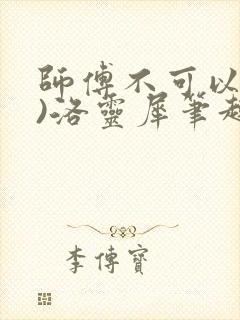 師傅不可以
)洛靈犀筆趣
李傅寶